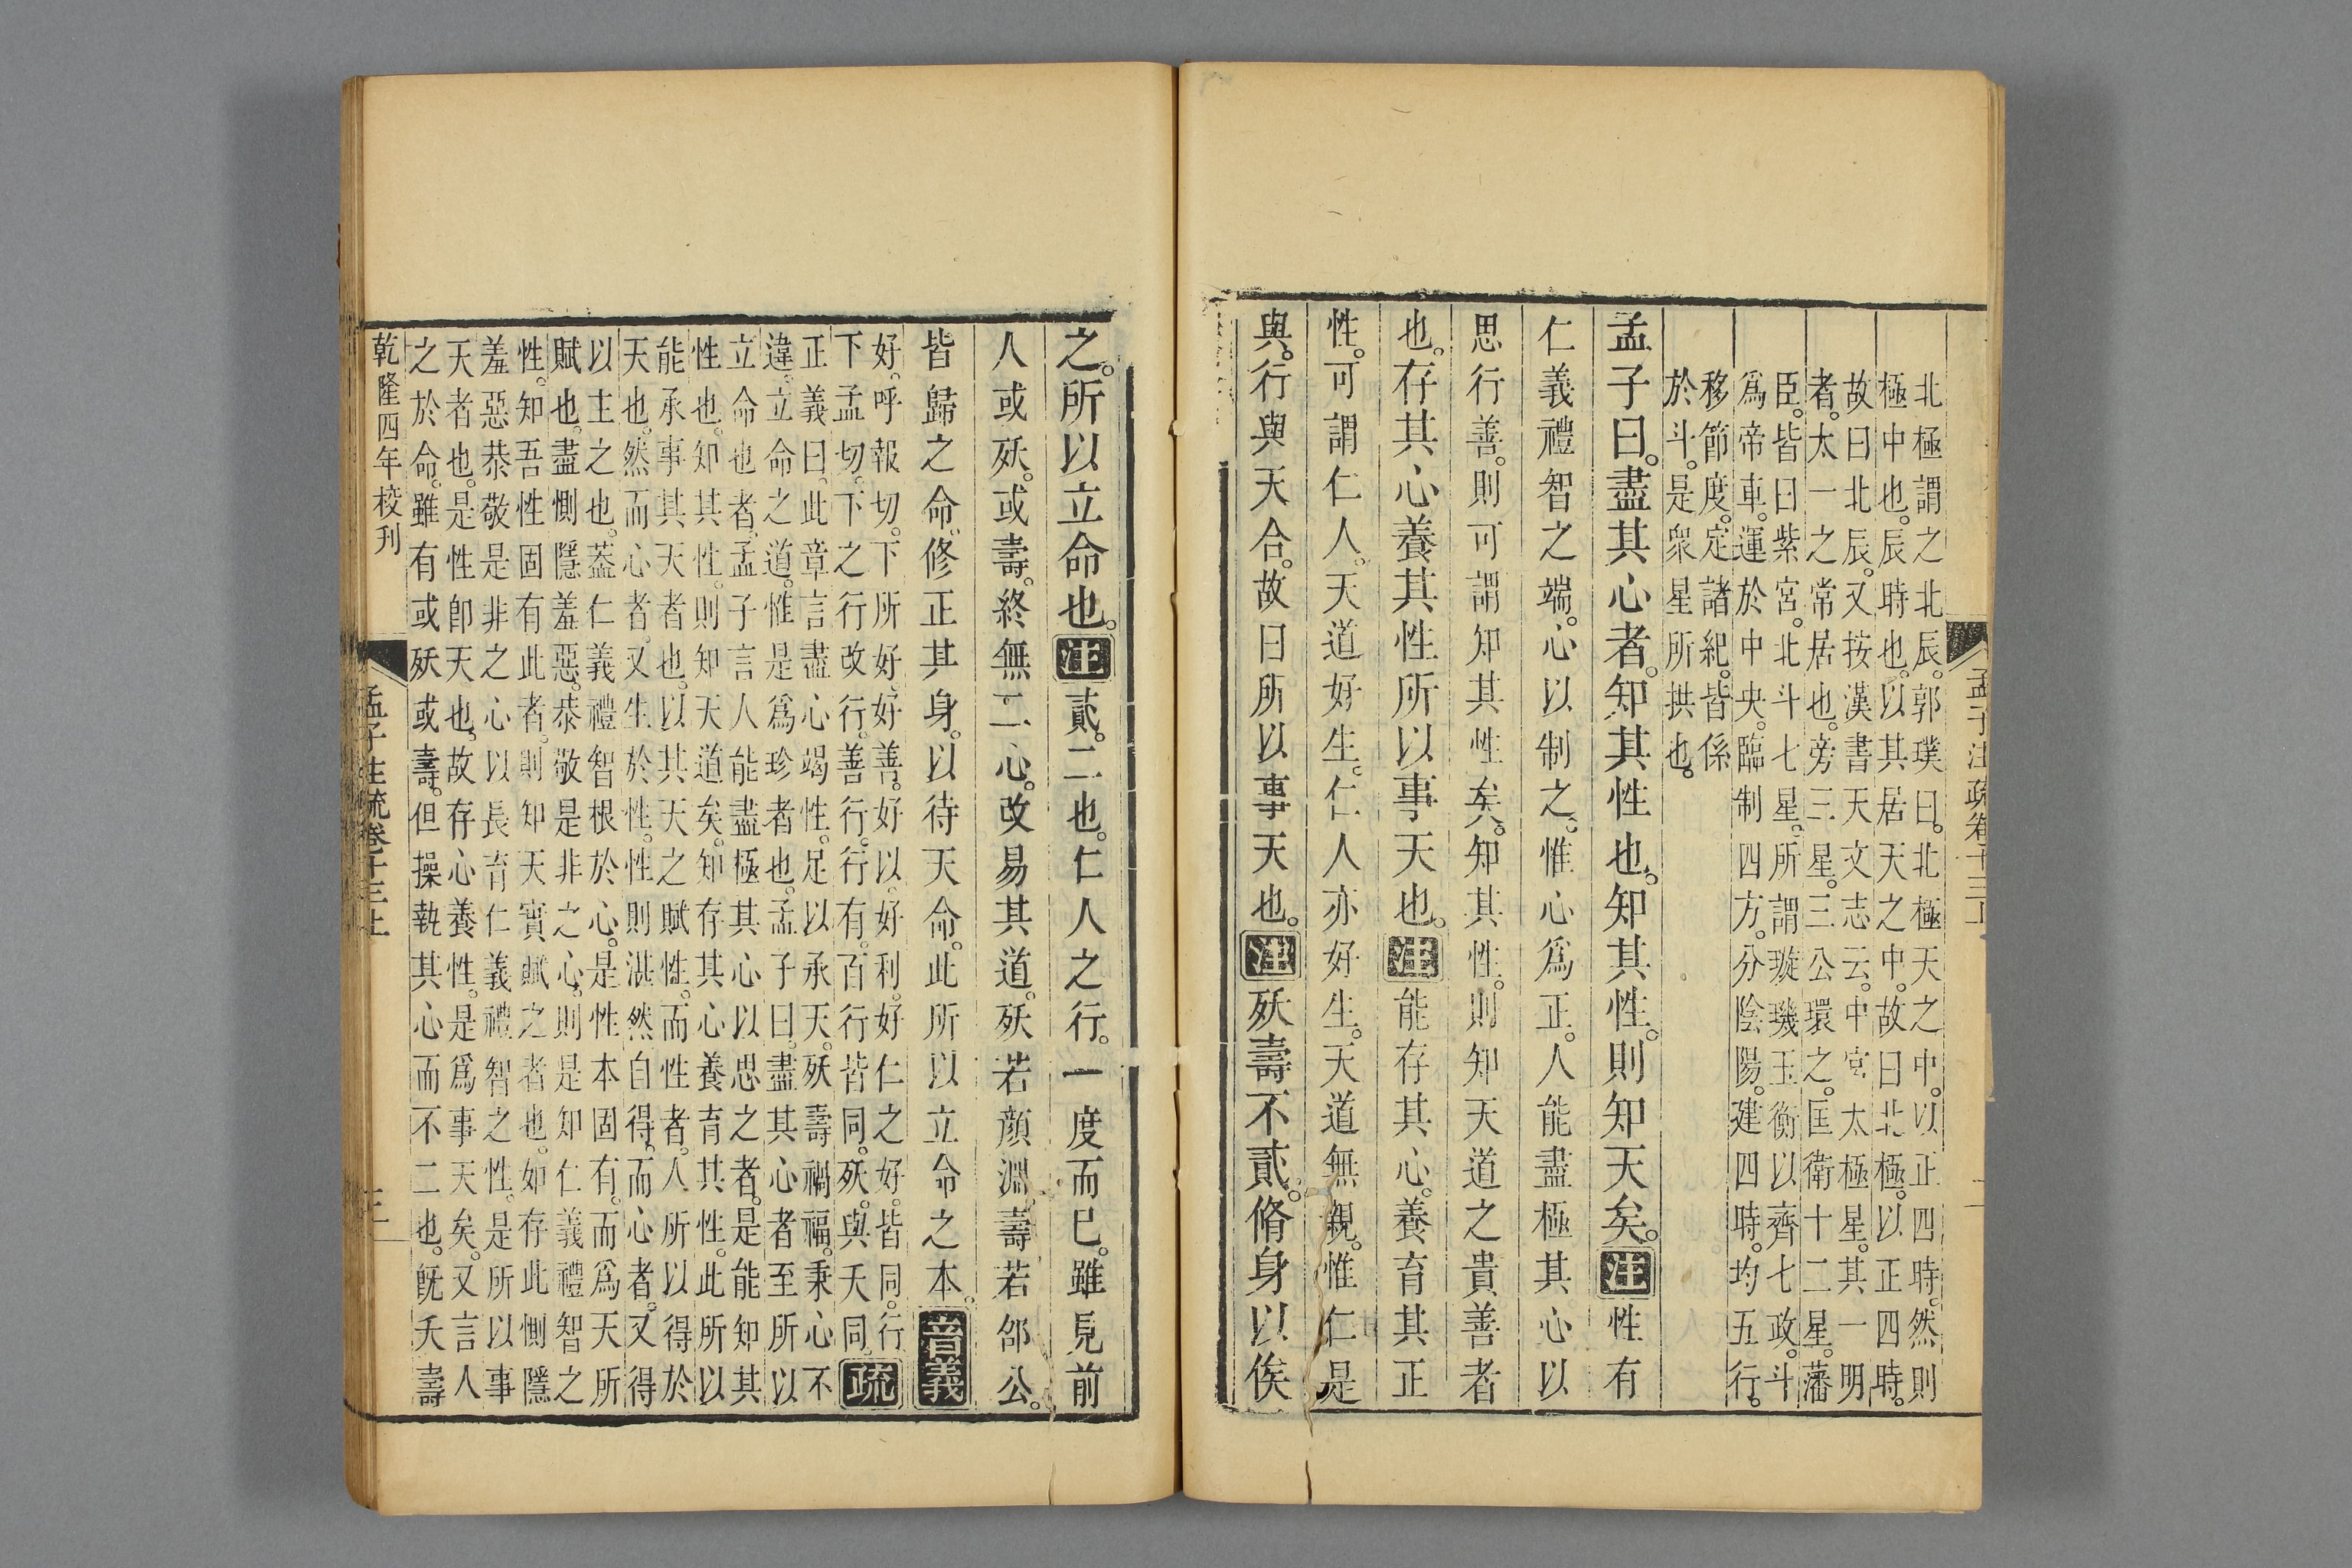 北極謂之北辰。郭璞曰。北極天之中。以正四時。然則
極中也。辰時也。以其居天之中。故曰北極。以正四時。
故曰北辰。又按漢書天文志云。中宮太極星。其一明
者。太一之常居也。旁三星。三公環之。匡衛十二星。藩
臣。皆曰紫宮。北斗七星。所謂璇璣玉衡以齊七政。斗
爲帝車。運於中央。臨制四方。分陰陽。建四時。均五行。
移節度。定諸紀。皆係
於斗。是衆星所拱也。
孟子曰。盡其心者。知其性也。知其性。則知天矣。注性有
仁義禮智之端。心以制之。惟心爲正。人能盡極其心以
思行善。則可謂知其性矣。知其性。則知天道之貴善者
也。存其心養其性所以事天也。注能存其心。養育其正
性。可謂仁人。天道好生。仁人亦好生。天道無親。惟仁是
與。行與天合。故曰所以事天也。注殀壽不貳。脩身以俟
之。所以立命也。注貳。二也。仁人之行。一度而已。雖見前
人或殀。或壽。終無二心。改易其道。殀若顏淵。壽若邵公。
皆歸之命。修正其身。以待天命。此所以立命之本。音義
好。呼報切。下所好。好善。好以。好利。好仁之好。皆同。行
下孟切。下之行改行。善行。行有。百行皆同。殀。與夭同疏
正義曰。此章言盡心竭性。足以承天。殀壽禍福。秉心不
違。立命之道。惟是爲珍者也。孟子曰。盡其心者至所以
立命也者。孟子言人能盡極其心以思之者。是能知其
性也。知其性。則知天道矣。知存其心養育其性。此所以
能承事其天者也。以其天之賦性。而性者。人所以得於
天也。然而心者。又生於性。性則湛然自得。而心者。又得
以主之也。蓋仁義禮智根於心。是性本固有。而爲天所
賦也。盡惻隱羞惡。恭敬是非之心。則是知仁義禮智之
性。知吾性固有此者。則知天實賦之者也。如存此惻隱
羞惡恭敬是非之心以長育仁義禮智之性。是所以事
天者也。是性卽天也。故存心養性。是爲事天矣。又言人
之於命。雖有或殀或壽。但操執其心而不二也。旣夭壽
乾隆四年校刊
孟子注疏卷十三上